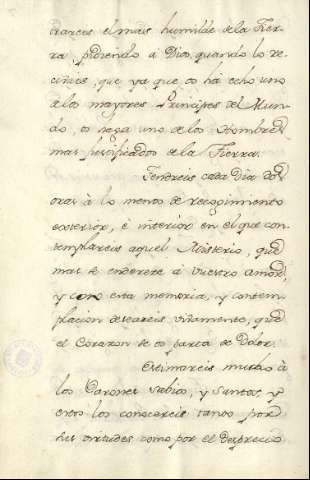 trareis el mas humilde de la Tier-
ra pidiendo à Dios, quando lo re-
civieis, que ya que os há echo uno
de los mayores Principes del Mun-
do, os haga uno de los Hombres
mas justificados de la Tierra.
Tendreis cada Dia dos
oras à lo menos de recogimiento
exterior, è interior en el que con-
templareis aquel Misterio, que
mas se enderece à vuestro amor,
y con esta memoria, y contem-
placion deseareis vivamente, que
el Corazon se os parta de Dolor.
Estimareis mucho à
los Varones Sabios, y Santos, y
estos los conocereis tanto por
sus virtudes como por el Desprecio